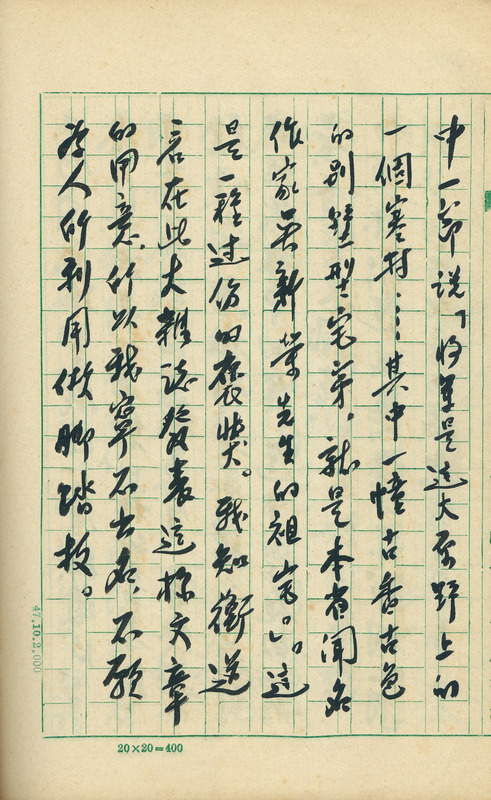 中一節說「将軍是這大原野上的
一個寒村……其中一幢古香古色
的別墅型宅第，就是本省聞名
作家吳新榮先生的祖宅。」。這
是一種过份的褒獎。我知衡道
君在此大雜誌發表這樣文章
的用意，所以我寧不出名，不願
為人所利用做脚踏板。
47.10.2,000
20×20=400